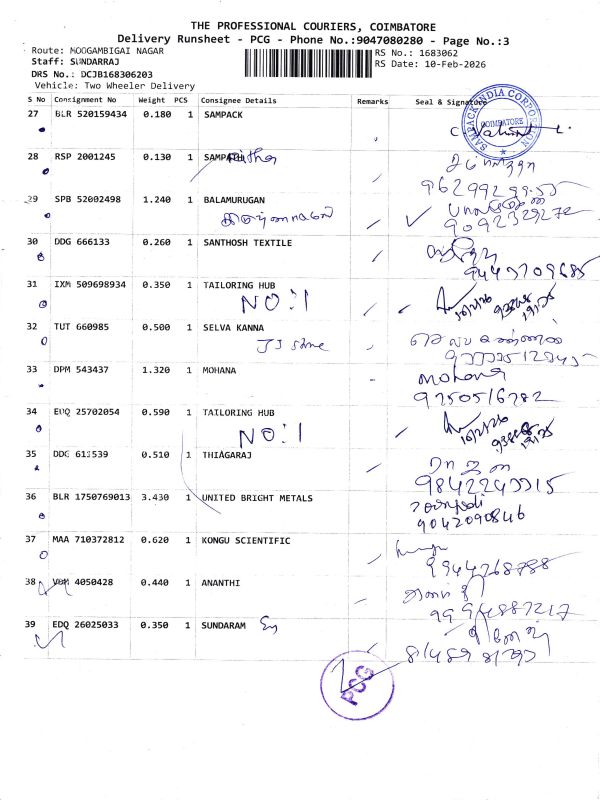 THE PROFESSIONAL COURIERS, COIMBATORE
Delivery Runsheet - PCG - Phone No.:9047080280 - Page No.:3
Route: MOOGAMBIGAI NAGAR
RS No.: 1683062
Staff: SUNDARRAJ
RS Date: 10-Feb-2026
DRS No.: DCJB168306203
Vehicle: Two Wheeler Delivery
S No Consignment No Weight PCS Consignee Details Remarks Seal & Signature
27 BLR 520159434 0.180 1 SAMPACK
SAMPACK INDIA CORPORATION
COIMBATORE
28 RSP 2001245 0.130 1
29 SPB 52002498 1.240 1 BALAMURUGAN
9092329272
30 DDG 666133 0.260 1 SANTHOSH TEXTILE
9443709685
31 IXM 509698934 0.350 1 TAILORING HUB
NO:1
32 TUT 660985 0.500 1 SELVA KANNA
33 DPM 543437 1.320 1 MOHANA
Mohana
9750516782
34 EDQ 25702054 0.590 1 TAILORING HUB
NO:1
35 DDG 613539 0.510 1 THIAGARAJ
36 BLR 1750769013 3.430 1 UNITED BRIGHT METALS
9042090846
37 MAA 710372812 0.620 1 KONGU SCIENTIFIC
9944268788
38 4050428 0.440 1 ANANTHI
39 EDQ 26025033 0.350 1 SUNDARAM
PCG